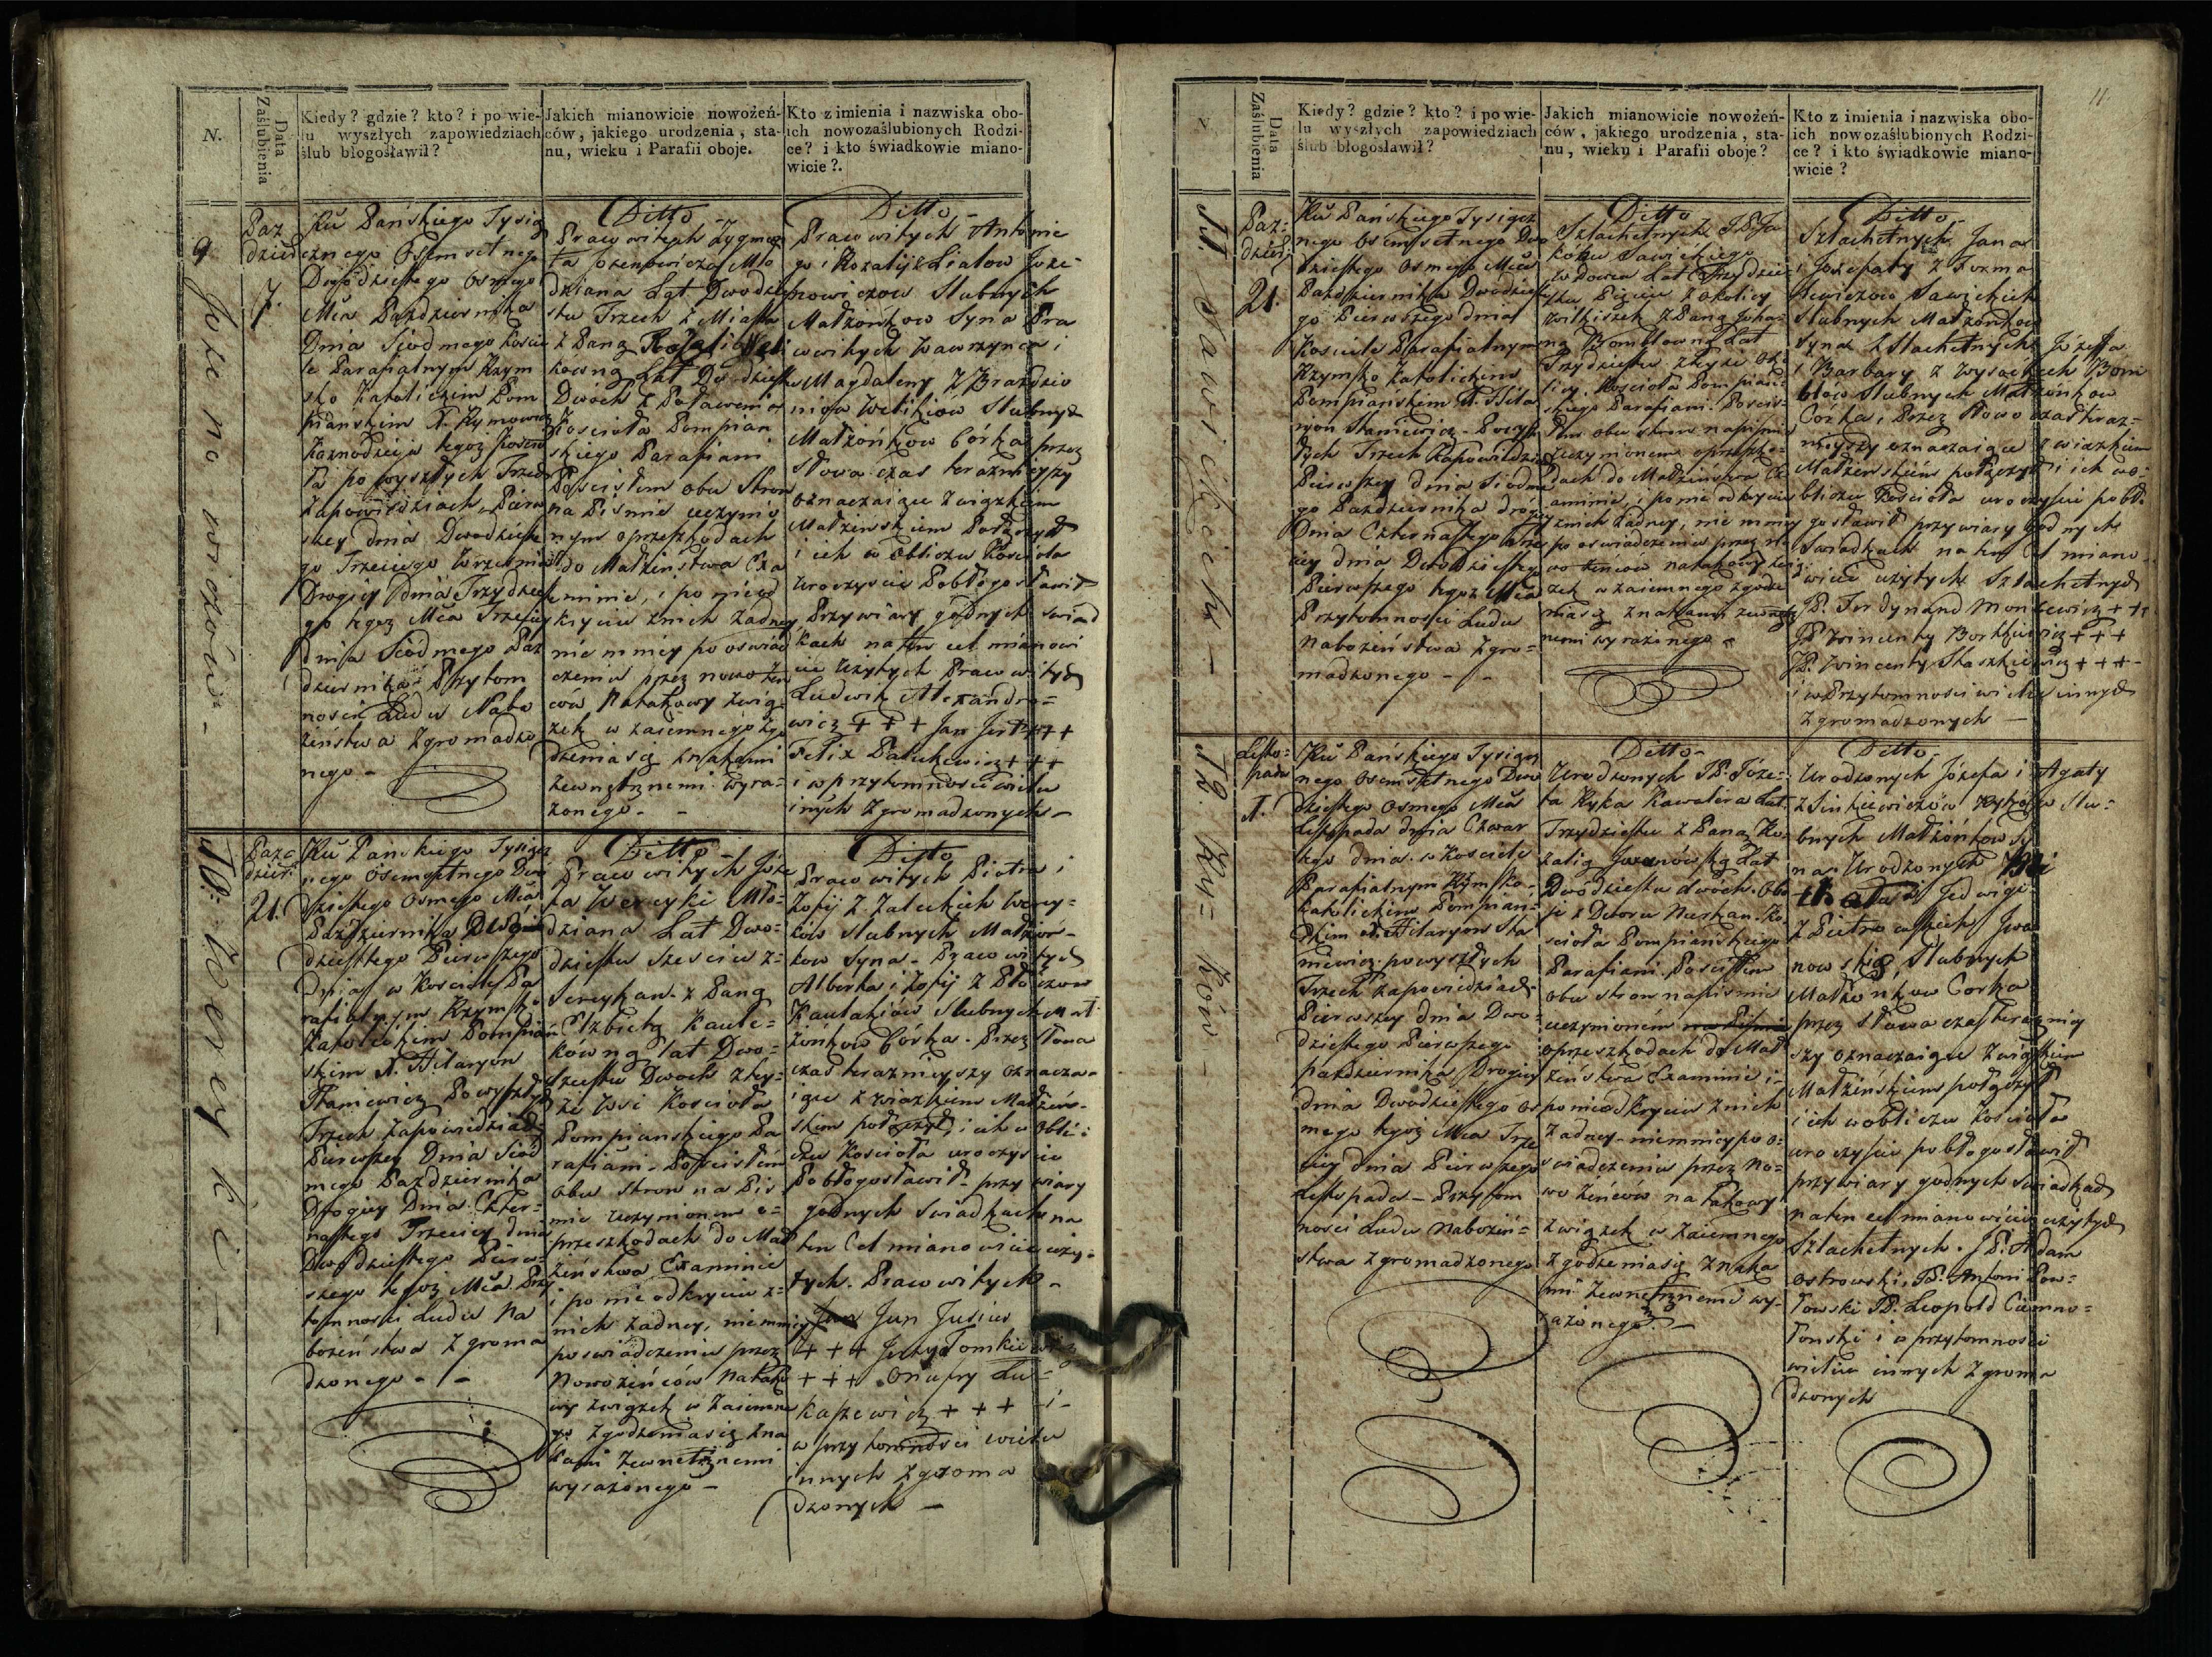 N.
Data
Zaślubienia
Kiedy? gdzie? kto? i po wie-
lu wyszłych zapowiedziach
ślub błogosławił?
Jakich mianowicie nowożeń-
ców, jakiego urodzenia, sta-
nu, wieku i Parafii oboje.
Kto z imienia i nazwiska obo-
ich nowozaślubionych Rodzi-
ce? i kto świadkowie miano-
wicie?.
9
Paz
dzier
7.
Ru Pańskiego Tysią
cznego Osmsetnego
Dwódziestego Osmego
Mca Pazdziernika
Dnia Siodmego Koście
le Parafialnym Rzym
sko Katolickim Pom
pianskim X. Rymowicz
Kaznodzieja tegoż Koscio
ła po wyszłych Trzech
Zapowiedziach, Pierw
szey dnia Dwodzieste
go Trzeciego Wrzesnia
Drogiey dnia Trzydzieste
go tegoż Mca Trzeciey
dnia Siódmego Paz
dziernika Przytom
nosci Ludu Nabo
żeństwa Zgromadzo
nego -
Ditto
Pracowitych Zygmon
ta Mło
dziana Lat Dwodzie
stu Trzech z Miasta
z Panną
kowną Lat Dwódziestu
Dwóch z
Kościoła Pompian
skiego Parafiani
Poscisłem obu Stron
na Pismie uczynio
nym oprzeszkodach
do Małżeństwa Exa
minie, i po nieod
kryciu znich żadney
niemniey po oswiad
czeniu przez nowożeń
ców Natakowy zwią
zek w zaiemnego zgo
dzeniasię znakami
zewnętrznemi wyra-
żonego. -
Ditto
Pracowitych Antonie
go i Rozalij z Lialow Joze-
powiczow Slubnych
Małżonkow Syna Pra
cowitych Wawrzynca i
Magdaleny z
Slubnych
Małżonkow Córka przez
słowa czas teraznieyszy
oznaczaiące związkiem
Małżenskim Połączył
i ich w obliczu Koscioła
uroczyscie Pobłogosławił
Przy wiary godnych swiad
kach naten cel mianowi
cie użytych Pracowitych
Ludwik Alexandro=
wicz + + + Jan +++
Felix Palukiewicz +++
i w przytomnosci wielu
innych Zgromadzonych -
10. Wereyki -
Pazdzier:
21.
Ru Pańskiego Tysiącz
nego Osmsetnego Dwu
dziestego Osmego Mca
Pazdziernika Dwó
dziestego Pierwszego
Dnia w Kosciele Pa
rafialnym Rzymsko
Katolickim Pompian
skim X. Hilaryon
Staniewicz Powyszłych
Trzech Zapowiedziach
Pierwszey Dnia Siód
mego Pazdziernika
Drogiey Dnia Czter-
nastego Trzeciey dnia
Dwódziestego Pierw-
szego tegoż Mca Przy
tomnosci Ludu Na
bożeństwa Zgroma
dzonego - -
Ditto
Pracowitych Józe
fa Wereyki Mło-
dziana Lat Dwo-
dziestu Szesciu z-
z Panną
Elzbietą Kaule=
kówną lat Dwo-
dziestu Dwoch
Wsi Koscioła
Pompianskiego Pa
rafiani - Poscisłem
obu stron na Pis-
mie uczynionem o-
przeszkodach do Mał
żeństwa Examinie
i po nie odkryciu z-
nich żadney, niemniey
poswiadczeniu przez
Nowożeńców Natako
wy związek w Zaiemne
go zgodzeniasię zna
kami Zewnętrznemi
wyrażonego -
Ditto
Pracowitych Piotra i
Zofij z Zaluckich Werey-
ków slubnych Małżon-
kow Syna - Pracowitych
Alberta i Zofij z
Slubnych Mał
żonkow Córka. Przez słowa
czas teraznieyszy oznacza-
iące związkiem Małżeńs-
kim połączył, i ich w Obli-
czu Kościoła uroczyscie
Pobłogosławił - przy wiary
godnych Swiadkach na
ten Cel mianowicie uży-
tych. Pracowitych -
Jan Jusius
+ + + Jerzy Tomkiewicz
+ + + Onufry Łu=
kaszewicz + + + i -
w przytomnosci wielu
innych Zgroma
dzonych -
11.
N
Data
Zaślubienia
Kiedy? gdzie? kto? i po wie-
lu wyszłych zapowiedziach
ślub błogosławił?
Jakich mianowicie nowożeń-
ców, jakiego urodzenia, sta-
nu, wieku i Parafii oboje?
Kto z imienia i nazwiska obo-
ich nowozaślubionych Rodzi-
ce? i kto świadkowie miano-
wicie?
11. Sawickich -
Paz-
dzier:
21
Ru Pańskiego Tysiącz
nego Osmsetnego Dwu
dziestego Osmego Mca
Pazdziernika Dwódzieste
go Pierwszego dnia
Kosciele Parafialnym
Rzymsko Katolickim
Pompianskim X. Hila
ryon Staniewicz - Powysz
łych Trzech Zapowiedziach
Pierwszey dnia Siodme
go Pazdziernika drógiey
Dnia Czternastego Trze
ciey dnia Dwudziestego
Pierwszego tegoż Mca
Przytomnosci Ludu
Nabożeństwa Zgro=
madzonego - -
Ditto
Szlachetnych JP. Ja
kóba Sawickiego
Wdowca Lat Trzydzie-
stu Pięciu z Okolicy
z Panną Joha-
ną Bomblowną Lat
Trzydziestu z teyże Oko
licy. Kościoła Pompian-
skiego Parafiani. Poscis-
łem obu stron napismie
Uczynionem oprzeszko-
dach do Małżeństwa Ex
aminie, i po nie odkryciu
znich żadney, nie mniey
po oswiadczeniu przez no-
wożeńcow natakowy zwią
zek wzaiemnego zgodze
niasię znakami zewnętrz
nemi wyrażonego -
Ditto
Szlachetnych Jana
i Jozefaty z Tuxma
Sawickich
Slubnych Małżonkow
Syna z Slachetnych Józefa
i Barbary z Wysockich Bom
blów Slubnych Małżonkow
Córka, Przez słowo czas teraz-
nieyszy oznaczaiące związkiem
Małżenskim połączył i ich wo-
bliczu Kościoła uroczyscie pobł-
gosławił przy wiary godnych
Swiadkach na ten Cel miano-
wicie użytych Szlachetnych
JP. Ferdynand Moncewicz +++
JP. Wincenty Bortkiewicz +++
JP. Wincenty Staszkiewicz +++ -
i w Przytomnosci wielu innych
Zgromadzonych -
12.
Listo=
pada
1.
Ru Pańskiego Tysiącz
nego Osmsetnego Dwu
dziestego Osmego Mca
Listopada dnia Czwar
tego dnia w Kosciele
Parafialnym Rzymsko-
Katolickim Pompian=
skim X. Hilaryon Sta
niewicz. powyszłych
Trzech zapowiedziach -
Pierwszey dnia Dwo-
dziestego Pierwszego
Pazdziernika Drogiey
dnia Dwudziestego Os
mego tegoż Mca Trze
ciey dnia Pierwszego
Listopada - Przytom
nosci Ludu Nabożeń=
stwa Zgromadzonego
Ditto -
Urodzonych JP. Józe-
fa Ryka Kawalera Lat
Trzydziestu z Panną Ro-
zalią Iwanówską Lat
Dwódziestu dwóch. Obo
je z Dworu Ko-
scioła Pompiańskiego
Parafiani. Poscisłem
obu stron napismie
uczynionem
oprzeszkodach do Mał
żeństwa Examinie i
ponieodkryciu znich
żadney - niemniey po o-
swiadczeniu przez No-
wożeńców na takowy
związek w Zaiemnego
zgodzeniasię Znaka
mi Zewnętrznemi wy-
rażonego. -
Ditto -
Urodzonych Józefa i Agaty
z Sinkiewiczów Ryków Slu-
bnych Małżonkow Sy
na. Urodzonych
Jedwigi
z Pietrowskich Iwa
nowskich, Slubnych
Małżonkow Corka
przez słowa czas terazniey
szy oznaczaiące Związkiem
Małżeńskiem połączył
i ich w obliczu Kościoła
uroczyscie pobłogosławił
przy wiary godnych Swiadkach
naten cel mianowicie użytych
Szlachetnych. JP. Adam
Ostrowski, JP. Antoni Pow-
łowski JP. Leopold Ciemno-
łonski i w przytomnosci
wielu innych Zgroma
dzonych